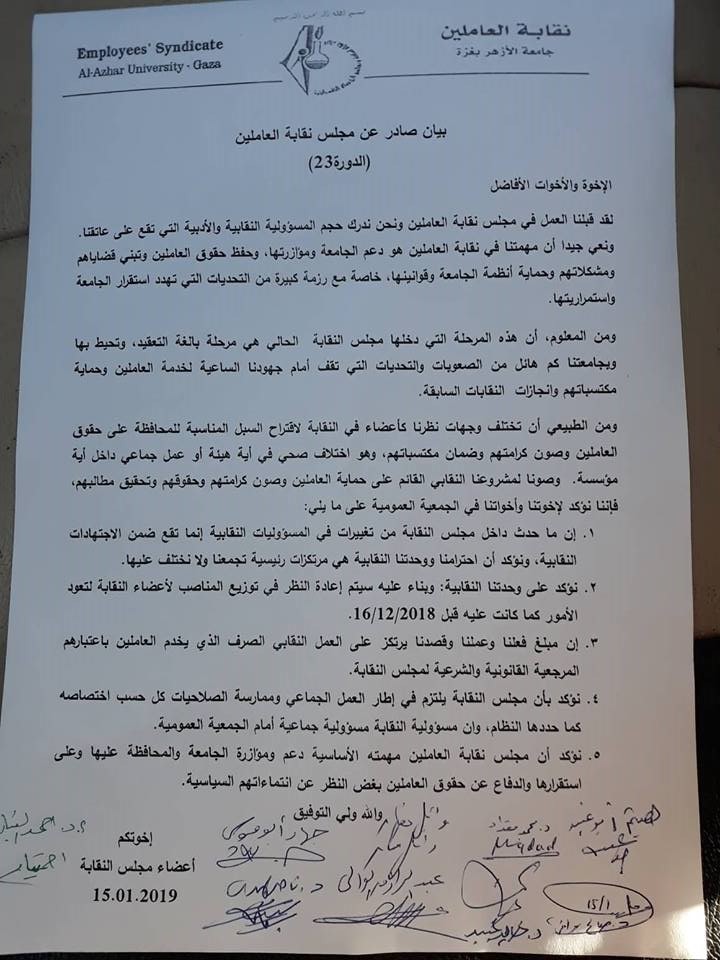 بسم الله الرحمن الرحيم
نقابة العاملين
جامعة الأزهر بغزة
Employees' Syndicate
Al-Azhar University - Gaza
بيان صادر عن مجلس نقابة العاملين
(الدورة23)
الإخوة والأخوات الأفاضل
لقد قبلنا العمل في مجلس نقابة العاملين ونحن ندرك حجم المسؤولية النقابية والأدبية التي تقع على عاتقنا.
ونعي جيدا أن مهمتنا في نقابة العاملين هو دعم الجامعة ومؤازرتها، وحفظ حقوق العاملين وتبني قضاياهم
ومشكلاتهم وحماية أنظمة الجامعة وقوانينها، خاصة مع رزمة كبيرة من التحديات التي تهدد استقرار الجامعة
واستمراريتها.
ومن المعلوم، أن هذه المرحلة التي دخلها مجلس النقابة الحالي هي مرحلة بالغة التعقيد، وتحيط بها
وبجامعتنا كم هائل من الصعوبات والتحديات التي تقف أمام جهودنا الساعية لخدمة العاملين وحماية
مكتسباتهم وانجازات النقابات السابقة.
ومن الطبيعي أن تختلف وجهات نظرنا كأعضاء في النقابة لاقتراح السبل المناسبة للمحافظة على حقوق
العاملين وصون كرامتهم وضمان مكتسباتهم، وهو اختلاف صحي في أية هيئة أو عمل جماعي داخل أية
مؤسسة. وصونا لمشروعنا النقابي القائم على حماية العاملين وصون كرامتهم وحقوقهم وتحقيق مطالبهم،
فإننا نؤكد لإخوتنا وأخواتنا في الجمعية العمومية على ما يلي:
١. إن ما حدث داخل مجلس النقابة من تغييرات في المسؤوليات النقابية إنما تقع ضمن الاجتهادات
النقابية، ونؤكد أن احترامنا ووحدتنا النقابية هي مرتكزات رئيسية تجمعنا ولا نختلف عليها.
٢. نؤكد على وحدتنا النقابية: وبناء عليه سيتم إعادة النظر في توزيع المناصب لأعضاء النقابة لتعود
الأمور كما كانت عليه قبل 16/12/2018.
٣. إن مبلغ فعلنا وعملنا وقصدنا يرتكز على العمل النقابي الصرف الذي يخدم العاملين باعتبارهم
المرجعية القانونية والشرعية لمجلس النقابة.
٤. نؤكد بأن مجلس النقابة يلتزم في إطار العمل الجماعي وممارسة الصلاحيات كل حسب اختصاصه
كما حددها النظام، وان مسؤولية النقابة مسؤولية جماعية أمام الجمعية العمومية.
٥. نؤكد أن مجلس نقابة العاملين مهمته الأساسية دعم ومؤازرة الجامعة والمحافظة عليها وعلى
استقرارها والدفاع عن حقوق العاملين بغض النظر عن انتماءاتهم السياسية.
والله ولي التوفيق
إخوتكم
أعضاء مجلس النقابة
15.01.2019
د. محمد مقداد
Miqdad
15/1